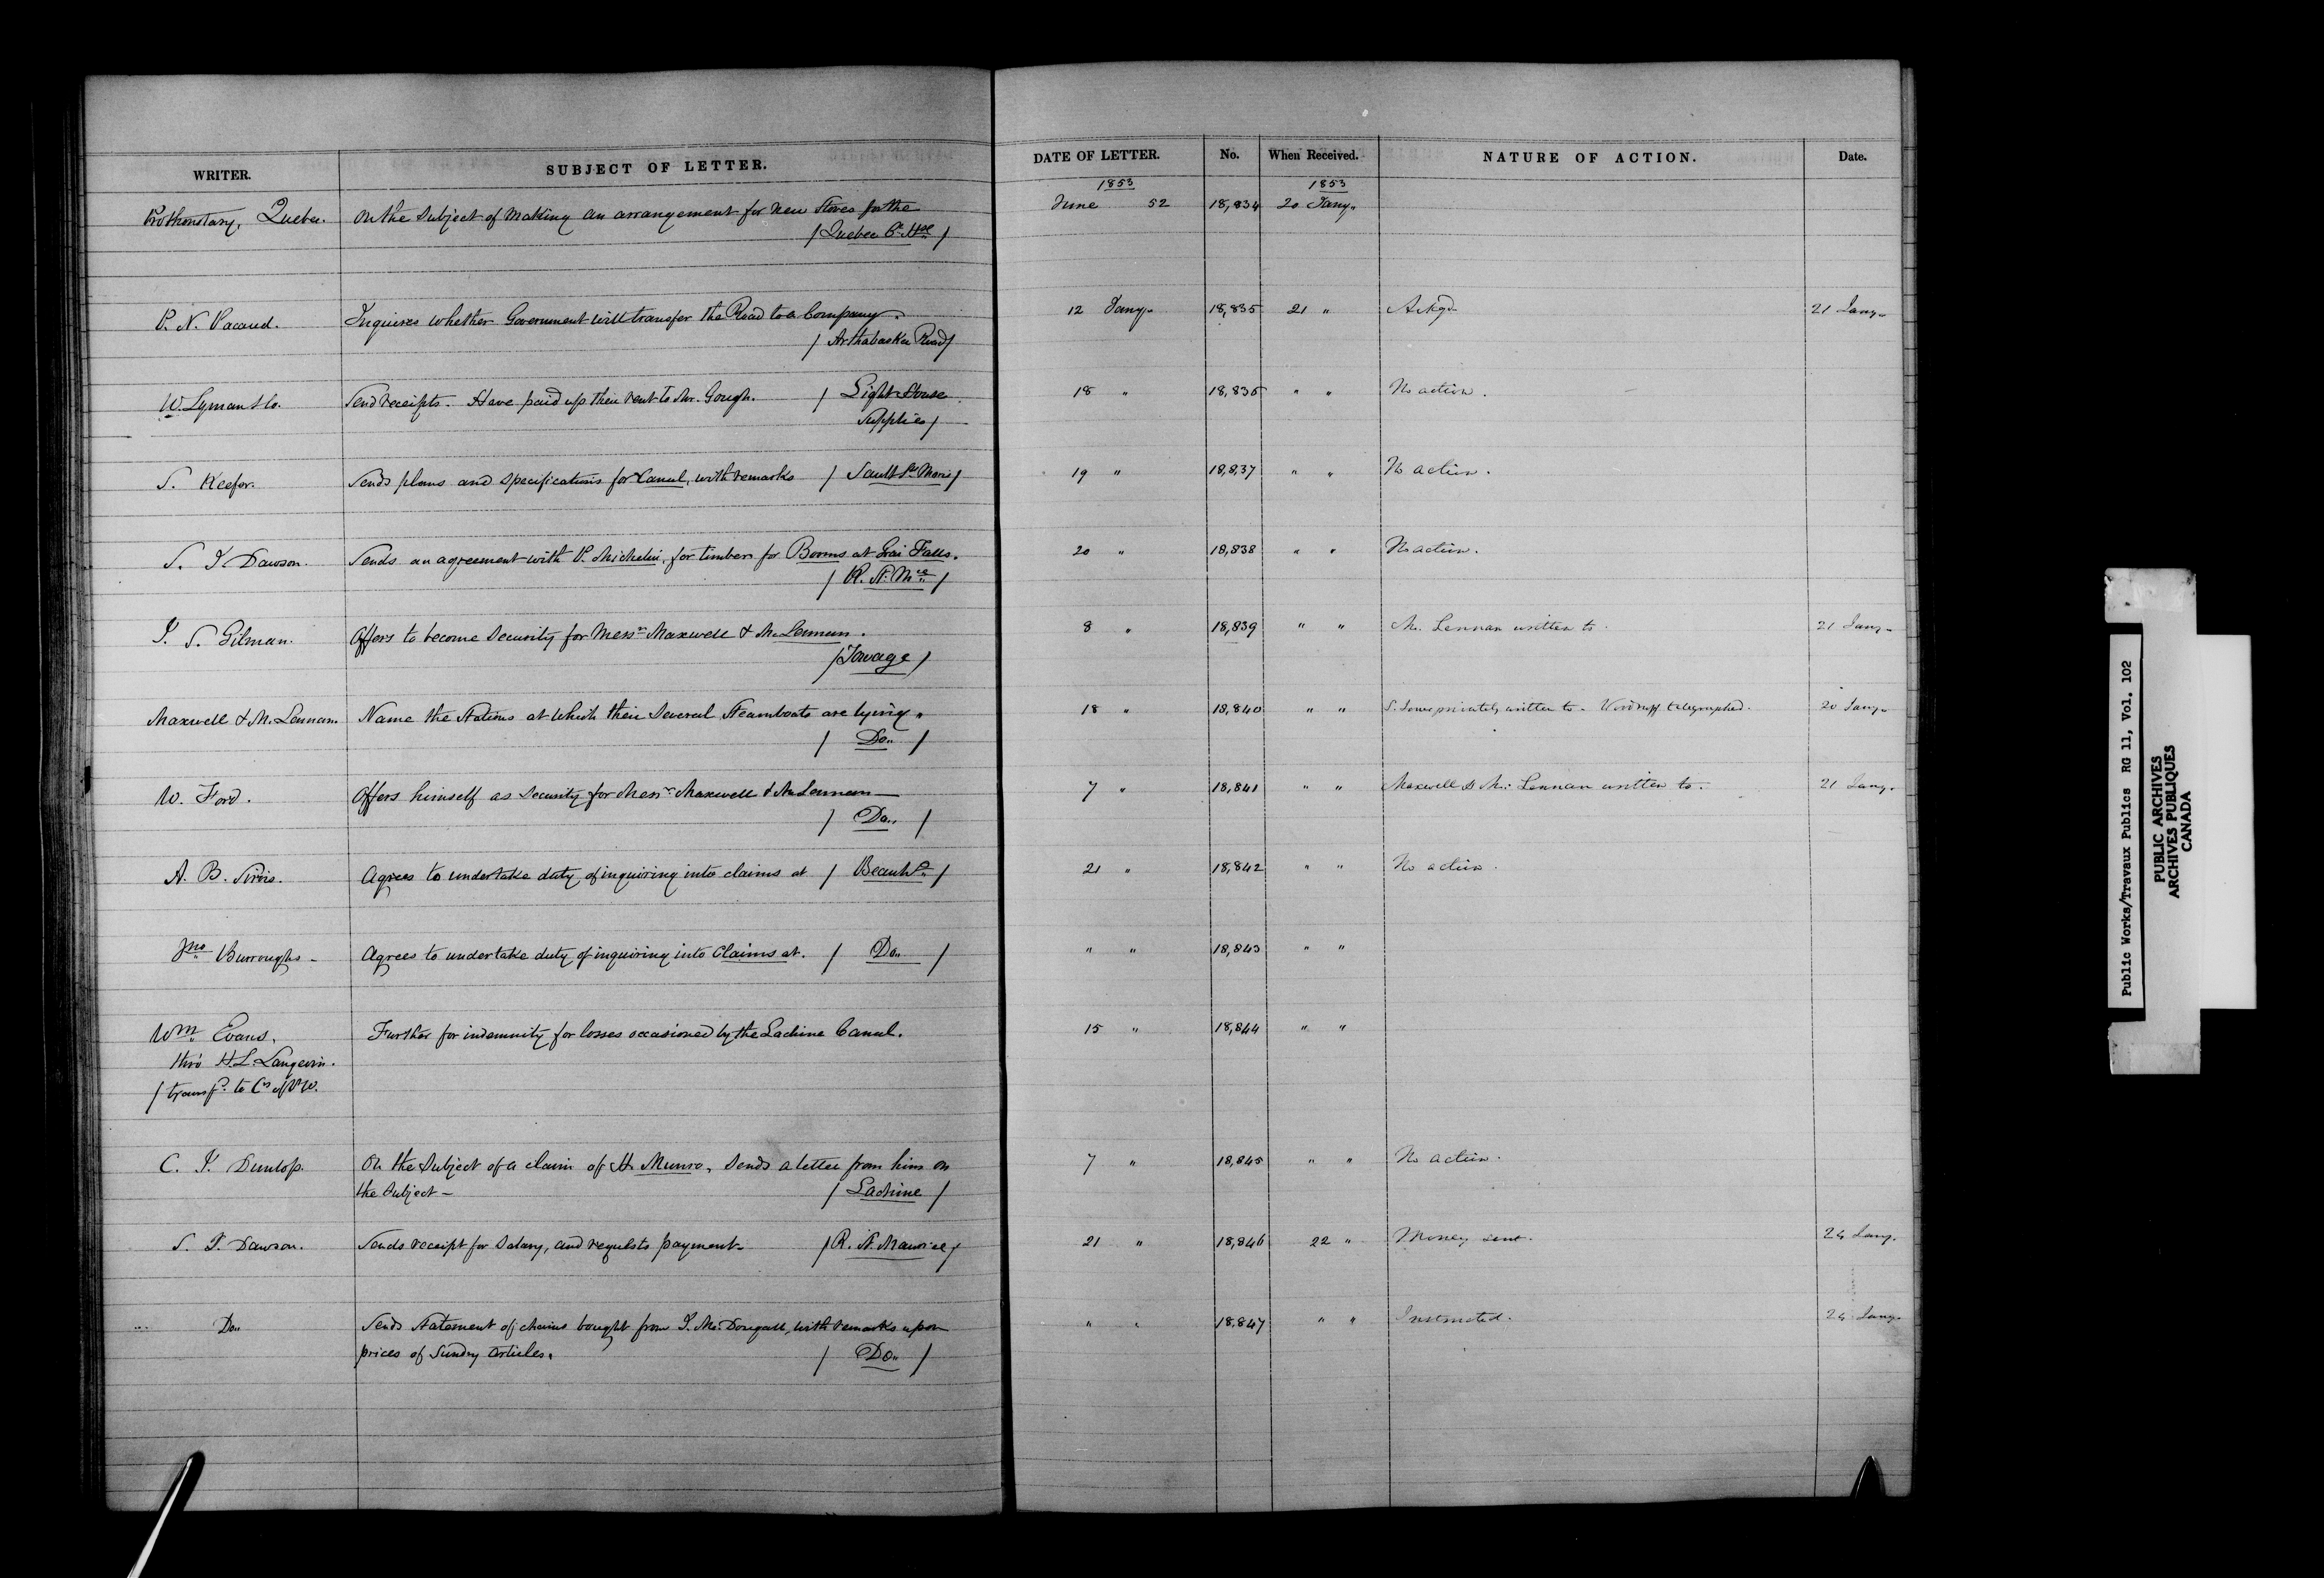 WRITER. SUBJECT OF LETTER. DATE OF LETTER. No. When Received. NATURE OF ACTION. Date.
1853 1853
Prothonotary, Quebec. On the subject of making an arrangement for new Stoves for the June 52 18,834 20 Jany.
/ Quebec Ct. Hse /
P. N. Pacaud. Inquires whether Government will transfer the Road to a Company. 12 Jany. 18,835 21 " Ackgd. 21 Jany.
/ Arthabaska Road /
W. Lyman & Co. Send receipts. Have paid up their rent to Mr. Gough. / Light House 18 " 18,836 " " No action.
Supplies /
S. Keefer. Sends plans and specifications for Canal, with remarks / Sault Ste Marie / 19 " 18,837 " " No action.
S. J. Dawson. Sends an agreement with P. Michelin, for timber for Booms at Grai Falls. 20 " 18,838 " " No action.
/ R. St. Mce /
J. S. Gilman. Offers to become security for Messrs Maxwell & McLennan. 8 " 18,839 " " Mc. Lennan written to. 21 Jany.
/ Towage /
Maxwell & McLennan. Name the Stations at which their several Steamboats are lying. 18 " 18,840 " " privately written to. Woodruff telegraphed. 20 Jany.
/ Do. /
W. Ford. Offers himself as security for Messrs Maxwell & McLennan 7 " 18,841 " " Maxwell & Mc. Lennan written to. 21 Jany.
/ Do. /
A. B. Sirois. Agrees to undertake duty of inquiring into claims at / Beauhs. / 21 " 18,842 " " No action.
Jno Burroughs Agrees to undertake duty of inquiring into Claims at. / Do. / " " 18,843 " "
Wm Evans, Further for indemnity for losses occasioned by the Lachine Canal. 15 " 18,844 " "
thro' H. L. Langevin.
/ transfd. to Cs of P.W.
C. J. Dunlop. On the subject of a claim of H. Munro, sends a letter from him on 7 " 18,845 " " No action.
the subject / Lachine /
S. J. Dawson. Sends receipt for Salary, and requests payment. / R. St. Maurice / 21 " 18,846 22 " Money sent. 24 Jany.
Do. Sends statement of chains bought from J. McDougall, with remarks upon " " 18,847 " " Instructed. 24 Jany.
prices of Sundry articles. / Do. /
Public Works/Travaux Publics RG 11, Vol. 102
PUBLIC ARCHIVES
ARCHIVES PUBLIQUES
CANADA